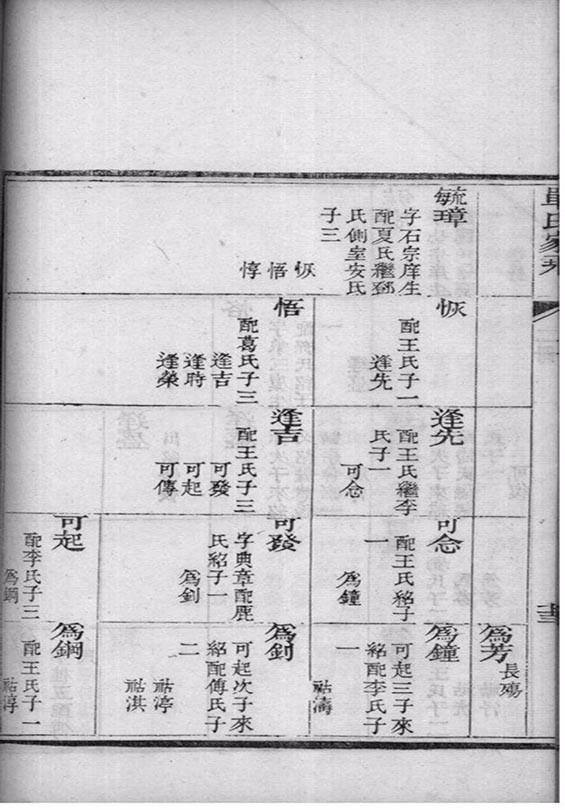 氏家乘
毓璋
字石宗庠生
配夏氏繼鄧
氏側室安氏
子三
恢
悟
惇
恢
配王氏子一
逢先
悟
配葛氏子三
逢吉
逢時
逢榮
逢先
配王氏繼李
氏子一
可念
逢吉
配王氏子三
可發
可起
可傳
可念
配王氏紹子
一
爲鐘
可發
字典章配鹿
氏紹子一
爲釗
可起
配李氏子三
爲鋼
爲芳
長殤
爲鐘
可起三子來
紹配李氏子
一
祜濤
爲釗
可起次子來
紹配傅氏子
二
祜渟
祜淇
爲鋼
配王氏子一
祜淳